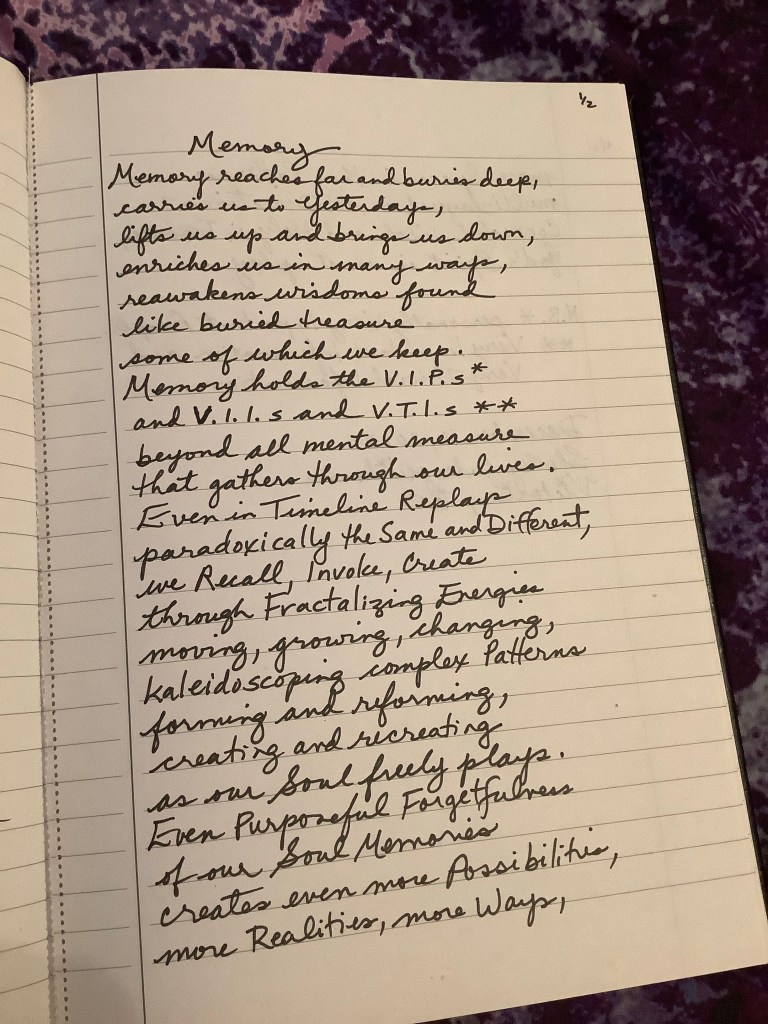 1/2
Memory
Memory reaches far and buries deep,
carries us to Yesterdays,
lifts us up and brings us down,
enriches us in many ways,
reawakens wisdoms found
like buried treasure
some of which we keep.
Memory holds the V.I.P.s*
and V.I.I.s and V.T.I.s **
beyond all mental measure
that gathers through our lives.
Even in Timeline Replays
paradoxically the Same and Different,
we Recall, Invoke, Create
through Fractalizing Energies
moving, growing, changing,
kaleidoscoping complex Patterns
forming and reforming,
creating and recreating
as our Soul freely plays.
Even Purposeful Forgetfulness
of our Soul Memories
creates even more Possibilities,
more Realities, more Ways,